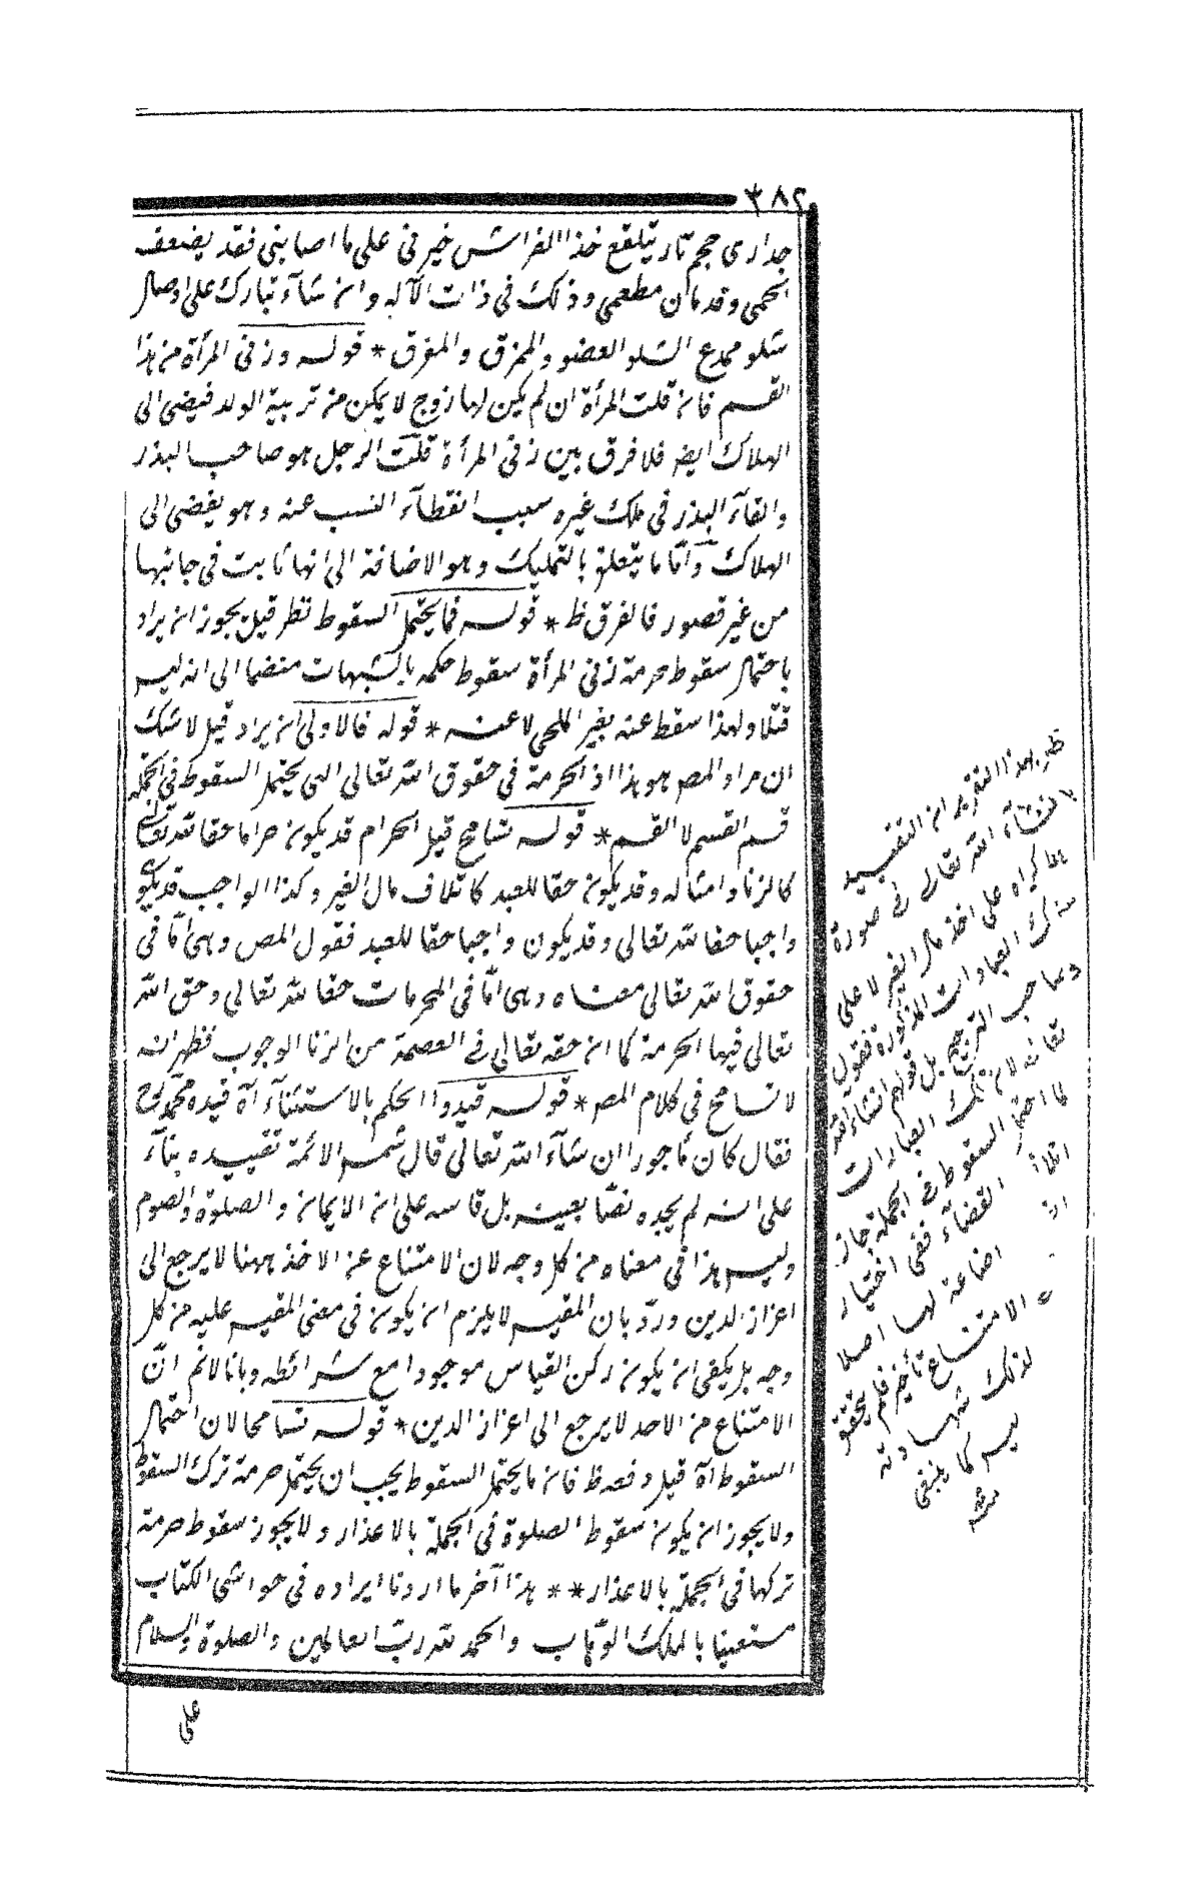 ٣٨٢
فقد يضعف
وذلك في ذات الآله وان شآء تبارك على اوصال
شلو ممزع الشلو العضو والممزق والمفرق * قوله وزنى المرأة من هذا
القسم فان قلت المرأة ان لم يكن لها زوج لا يمكن من تربية الولد فيفضى الى
الهلاك ايضا فلا فرق بين زنى المرأة قلت الرجل هو صاحب البذر
والقآء البذر في ملك غيره سبب انقطاء النسب عنه وهو يفضى الى
الهلاك وأمّا ما يتعلق بالتمليك وهو الاضافة الى انها ثابت في جانبها
من غير قصور فالفرق ظ * قوله فما يحتمل السقوط نظر قيل يجوز ان يراد
باحتمال سقوط حرمة زنى المرأة سقوط حكمه بالشبهات منضما الى انه ليس
قتلا ولهذا سقط عنه بغير الملجى لا عنه * قوله فالاولى ان يراد قيل لا شك
ان مراد المص هو هذا اذ الحرمة في حقوق الله تعالى التي يحتمل السقوط في الجملة
قسم القسم لا القسم * قوله تسامح قيل الحرام قد يكون حراما حقا لله تعالى
كالزنا وامثاله وقد يكون حقا للعبد كاتلاف مال الغير وكذا الواجب قد يكون
واجبا حقا لله تعالى وقد يكون واجبا حقا للعبد فقول المص وهى أمّا في
حقوق الله تعالى معناه وهى أمّا في المحرمات حقا لله تعالى وحق الله
تعالى فيها الحرمة كما ان حقه تعالى في العصمة من الزنا الوجوب فظهر انه
لا تسامح في كلام المص * قوله قيدوا الحكم بالاستثنآء آه قيده محمد رح
فقال كان مأجورا ان شآء الله تعالى قال شمس الائمة تقييده بنآء
على انه لم يجده نصّا بعينه بل قاسه على ان الايمان والصلوة والصوم
وليس هذا في معناه من كل وجه لان الامتناع عن الاخذ ههنا لا يرجع الى
اعزاز الدين وردّ بان المقيس لا يلزم ان يكون في معنى المقيس عليه من كل
وجه بل يكفى ان يكون ركن القياس موجودا مع شرائطه وبانا لانم انّ
الامتناع من الاحد لا يرجع الى اعزاز الدين * قوله تسامحا لان احتمال
السقوط آه قيل وفيه ظ فان ما يحتمل السقوط يجب ان يحتمل حرمة ترك السقوط
ولا يجوز ان يكون سقوط الصلوة في الجملة بالاعذار ولا يجوز سقوط حرمة
تركها في الجملة بالاعذار ** هذا آخر ما اردنا ايراده في حواشى الكتاب
مستعينا بالملك الوهّاب والحمد لله ربّ العالمين والصلوة والسلام
على
بهذا التقرير ان التقييد
انشآء الله تعالى في صورة
الاكراه على اخذ مال الغير لا على
ترك العبادات المذكورة فقول
صاحب
تلك العبارات
السقوط في الجملة جاز
القضآء ففى اختيار
اضاعة لها اصلا
الامتناع تأخير فلم يتحقق
لذلك شهادته
ليس كما ينبغى